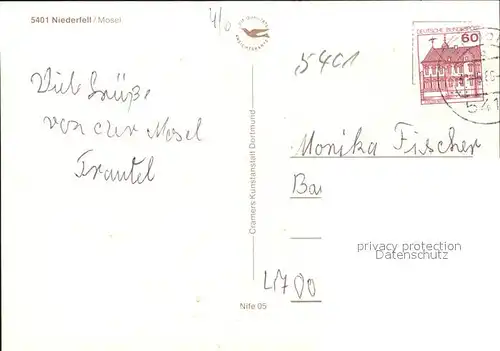 5401 Niederfell/Mosel
4/0
Viele Grüße
von der Mosel
Trautel
Cramers Kunstanstalt Dortmund
Nife 05
DEUTSCHE BUNDESPOST
60
541
5401
Monika Fischer
Ba
privacy protection
Datenschutz